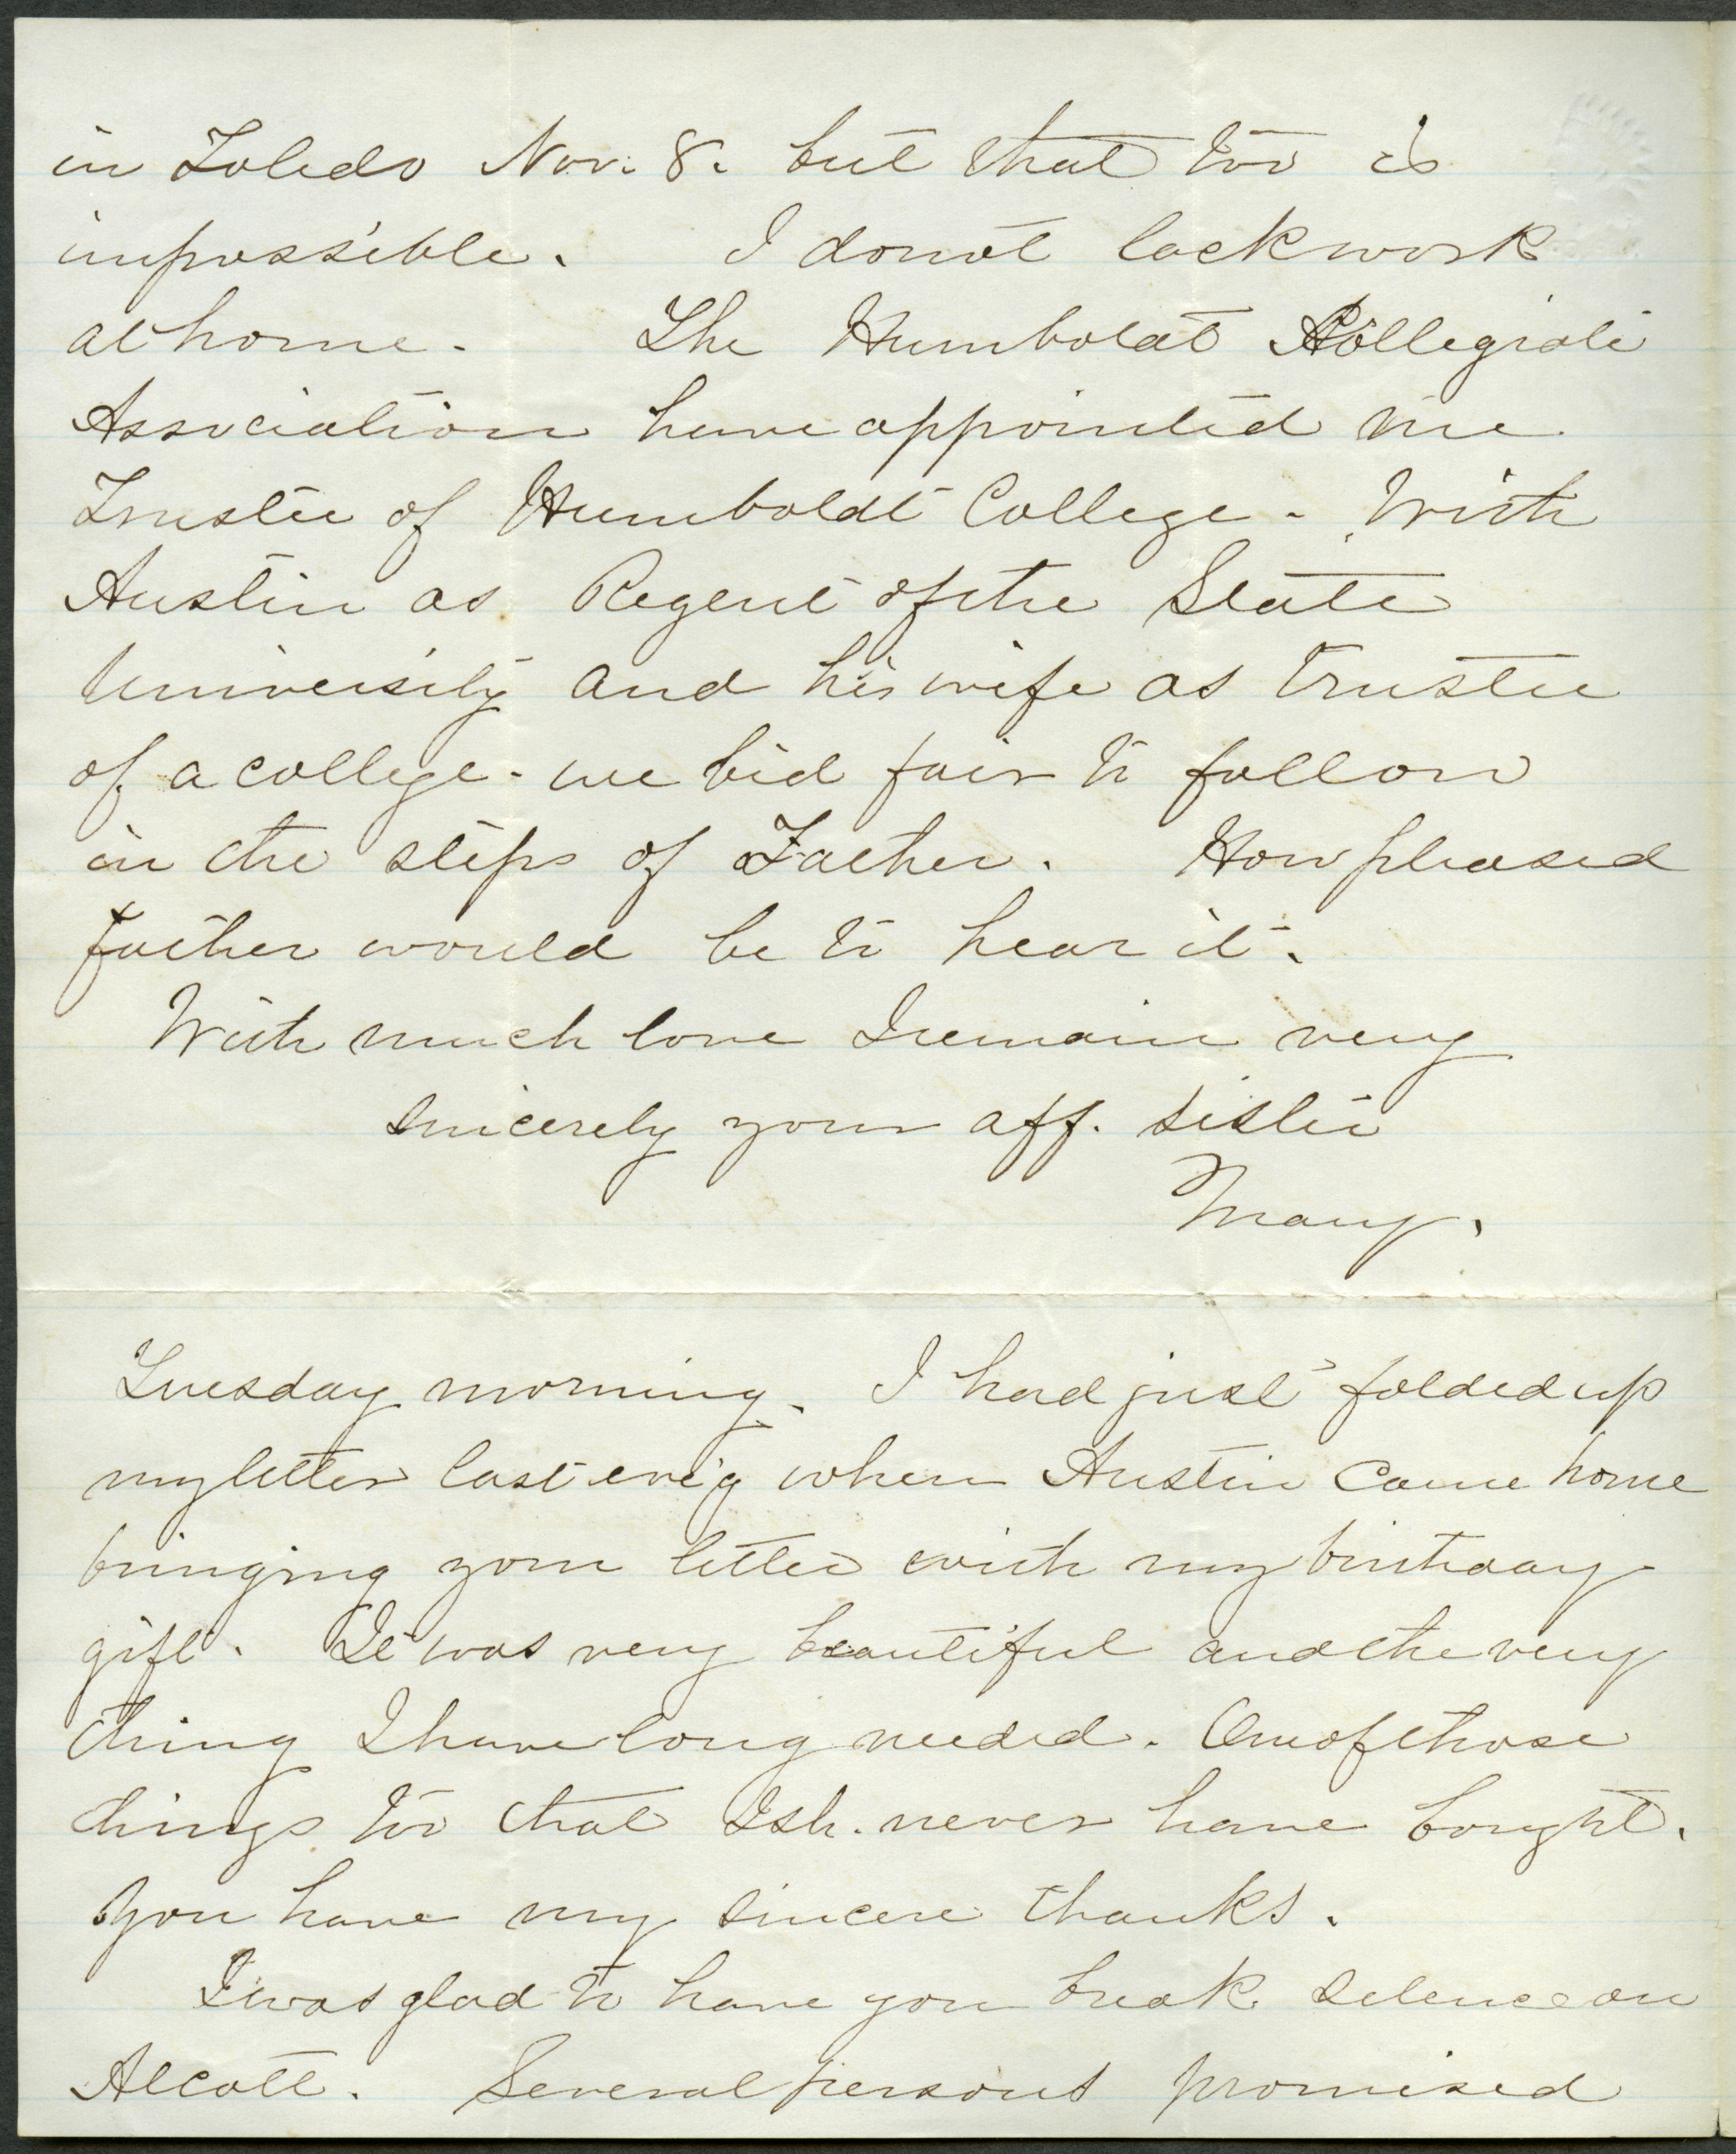 in Toledo Nov. 8. but that too is
impossible. I do not lack work
at home. The Humboldt Collegiate
Association have appointed me
Trustee of Humboldt College. With
Austin as Regent of the State
University and his wife as trustee
of a college - we bid fair to follow
in the steps of Father. How pleased
father would be to hear it.
With much love I remain very
sincerely your aff. sister
Mary.
Tuesday morning. I had just folded up
my letter last eve'g when Austin came home
bringing your letter with my birthday
gift. It was very beautiful and the very
thing I have long needed. One of those
things too that I sh. never have bought.
You have my sincere thanks.
I was glad to have you break silence on
Alcott. Several persons promised